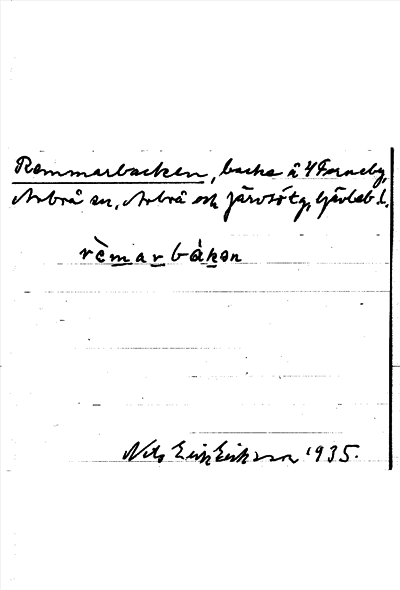 Remmarbacken, backe å 4 Forneby,
Arbrå sn, Arbrå och Järvsö tg, Gävleb. l.
rèmarbákən
Nils Erik Eriksson 1935.